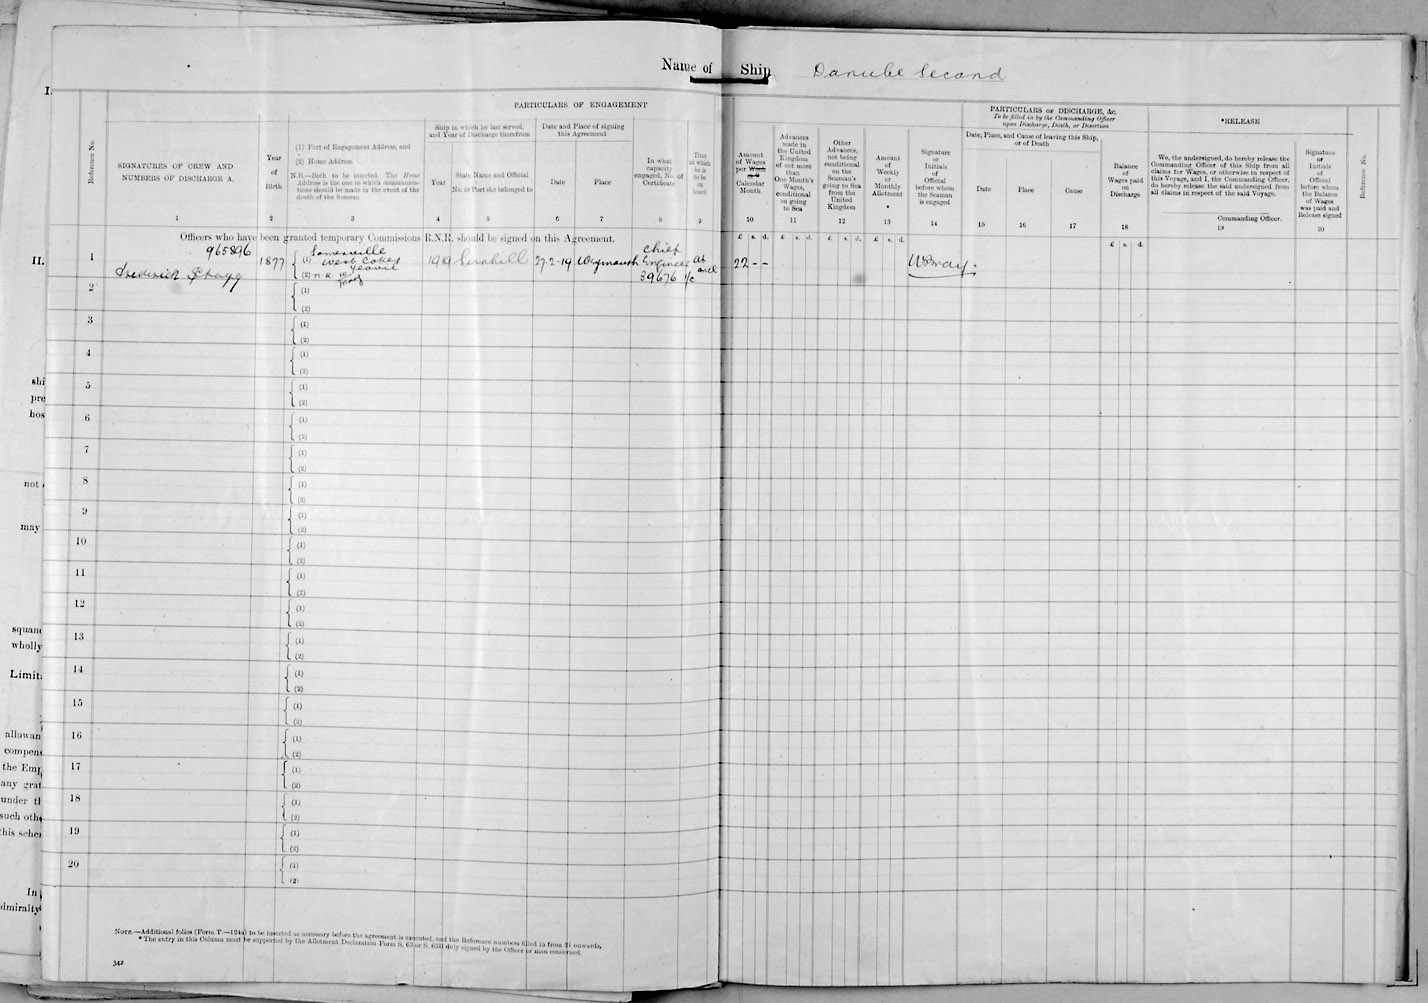 Name of Ship Danube Second
I.
PARTICULARS OF ENGAGEMENT
PARTICULARS OF DISCHARGE, &c.
To be filled in by the Commanding Officer
upon Discharge, Death, or Desertion
*RELEASE
Reference No.
SIGNATURES OF CREW AND
NUMBERS OF DISCHARGE A.
Year
of
Birth
(1) Port of Engagement Address, and
(2) Home Address.
N.B.—Both to be inserted. The Home
Address is the one to which communica-
tions should be made in the event of the
death of the Seaman.
Ship in which he last served,
and Year of Discharge therefrom
Year
State Name and Official
No. or Port she belonged to
Date and Place of signing
this Agreement
Date
Place
In what
capacity
engaged, No. of
Certificate
Time
at which
he is
to be
on
board
Amount
of Wages
per Week
Calendar
Month
Advances
made in
the United
Kingdom
of not more
than
One Month's
Wages,
conditional
on going
to Sea
Other
Advances,
not being
conditional
on the
Seaman's
going to Sea
from the
United
Kingdom
Amount
of
Weekly
or
Monthly
Allotment
*
Signature
or
Initials
of
Official
before whom
the Seaman
is engaged
Date, Place, and Cause of leaving this Ship,
or of Death
Date
Place
Cause
Balance
of
Wages paid
on
Discharge
We, the undersigned, do hereby release the
Commanding Officer of this Ship from all
claims for Wages, or otherwise in respect of
this Voyage, and I, the Commanding Officer,
do hereby release the said undersigned from
all claims in respect of the said Voyage.
Commanding Officer.
Signature
or
Initials
of
Official
before whom
the Balance
of Wages
was paid and
Release signed
Reference No.
1 2 3 4 5 6 7 8 9 10 11 12 13 14 15 16 17 18 19 20
Officers who have been granted temporary Commissions R.N.R. should be signed on this Agreement.
£ s. d. £ s. d. £ s. d. £ s. d. £ s. d.
II.
1
965896
Frederick
1877
(1) Somerville
West Coker
Yeovil
(2) n.k. w
1919
27-2-19
Weymouth
Chief
Engineer
39676
At
once
22 - -
WBray.
2 (1)
(2)
3 (1)
(2)
4 (1)
(2)
5 (1)
(2)
6 (1)
(2)
7 (1)
(2)
8 (1)
(2)
9 (1)
(2)
10 (1)
(2)
11 (1)
(2)
12 (1)
(2)
13 (1)
(2)
14 (1)
(2)
15 (1)
(2)
16 (1)
(2)
17 (1)
(2)
18 (1)
(2)
19 (1)
(2)
20 (1)
(2)
shi
pre
hos
not
may
squand
wholly
Limit
allowan
compens
the Emp
any grat
under th
such othe
his sche
In
dmiralty
NOTE.—Additional folios (Form T.—124a) to be inserted as necessary before the agreement is executed, and the Reference numbers filled in from 21 onwards.
* The entry in this Column must be supported by the Allotment Declaration Form S. 63 or S. 63B duly signed by the Officer or man concerned.
342